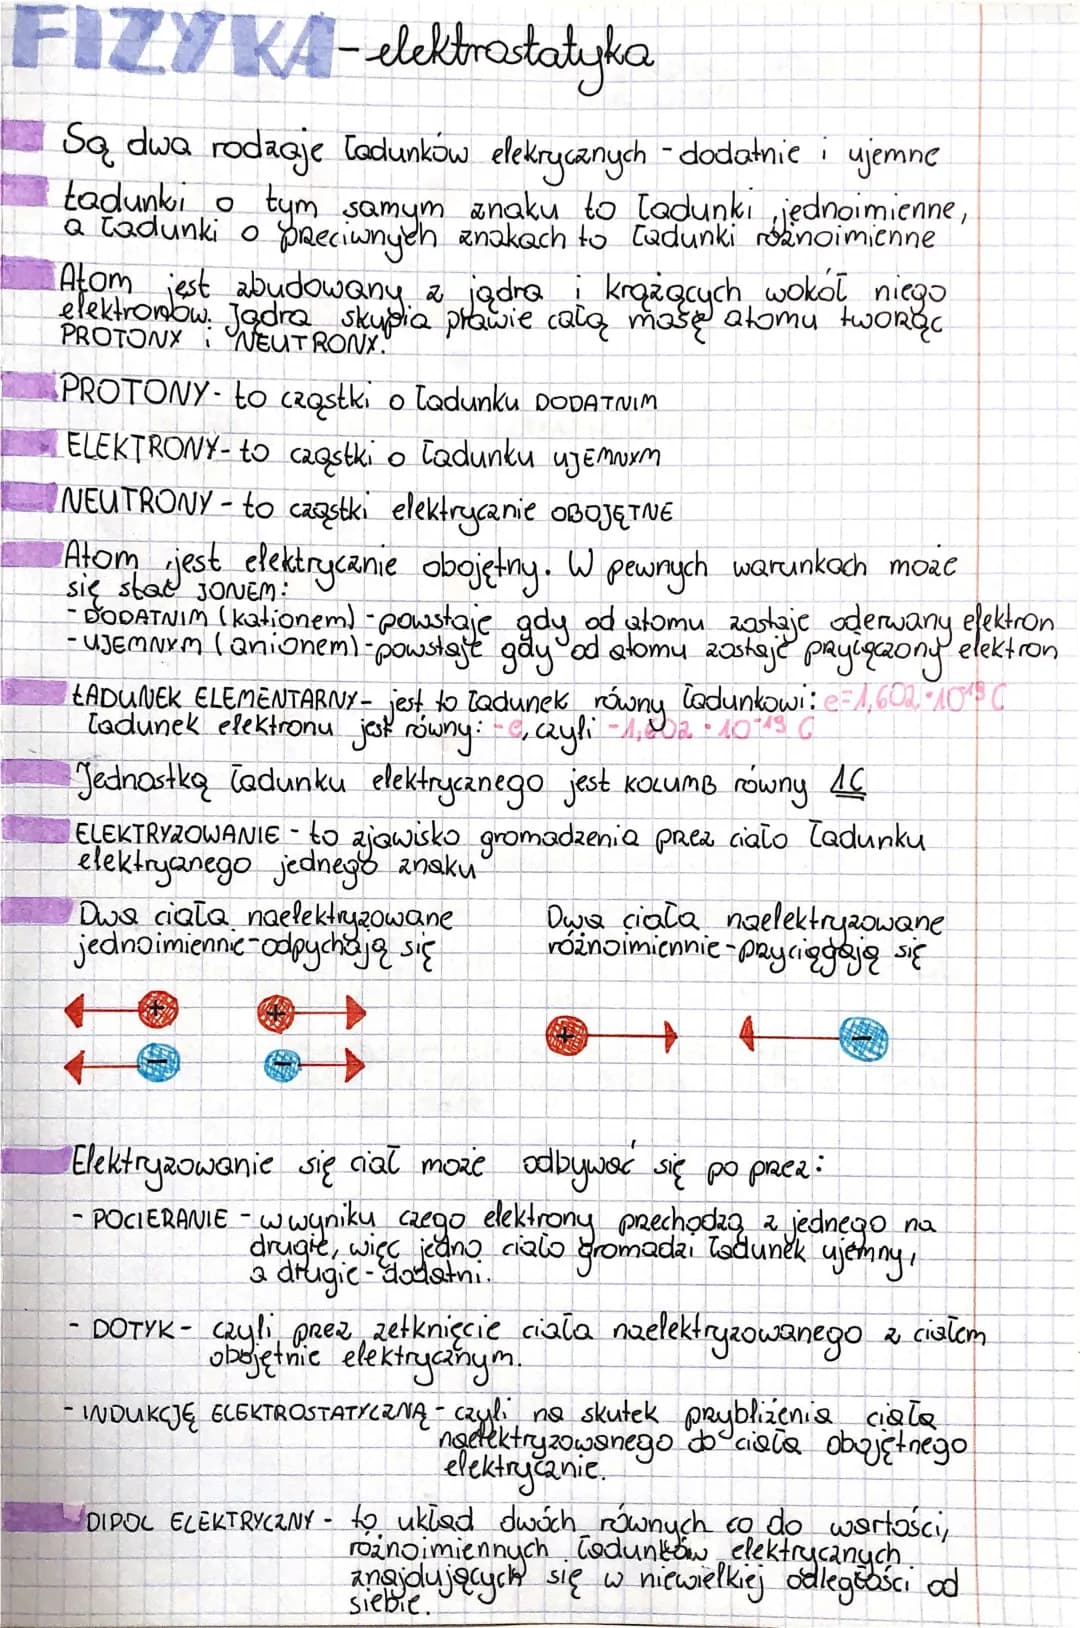 FIZYKA - elektrostatyka
Są dwa rodzaje ładunków elekrycznych - dodatnie i ujemne
Ładunki o tym samym znaku to ładunki jednoimienne,
a ładunki o przeciwnych znakach to ładunki różnoimienne
Atom jest zbudowany z jądra i krążących wokół niego
elektronów. Jądra skupia prawie całą masę atomu tworząc
PROTONY i NEUTRONY.
PROTONY - to cząstki o ładunku DODATNIM
ELEKTRONY - to cząstki o ładunku UJEMNYM
NEUTRONY - to cząstki elektrycznie OBOJĘTNE
Atom jest elektrycznie obojętny. W pewnych warunkach może
się stać JONEM:
- DODATNIM (kationem) - powstaje gdy od atomu zostaje oderwany elektron
- UJEMNYM (anionem) - powstaje gdy od atomu zostaje przyłączony elektron
ŁADUNEK ELEMENTARNY - jest to ładunek równy ładunkowi: e=1,602·10¹⁹ C
ładunek elektronu jest równy: -e, czyli -1,602·10⁻¹⁹ C
Jednostką ładunku elektrycznego jest KOLUMB równy 1C
ELEKTRYZOWANIE - to zjawisko gromadzenia przez ciało ładunku
elektrycznego jednego znaku
Dwa ciała naelektryzowane
jednoimiennie - odpychają się
Dwa ciała naelektryzowane
różnoimiennie - przyciągają się
+ +
- -
+ -
Elektryzowanie się ciał może odbywać się po przez:
- POCIERANIE - w wyniku czego elektrony przechodzą z jednego na
drugie, więc jedno ciało gromadzi ładunek ujemny,
a drugie - dodatni.
- DOTYK - czyli przez zetknięcie ciała naelektryzowanego z ciałem
obojętnie elektrycznym.
- INDUKCJĘ ELEKTROSTATYCZNĄ - czyli na skutek przybliżenia ciała
naelektryzowanego do ciała obojętnego
elektrycznie.
DIPOL ELEKTRYCZNY - to układ dwóch równych co do wartości,
różnoimiennych ładunków elektrycznych
znajdujących się w niewielkiej odległości od
siebie.